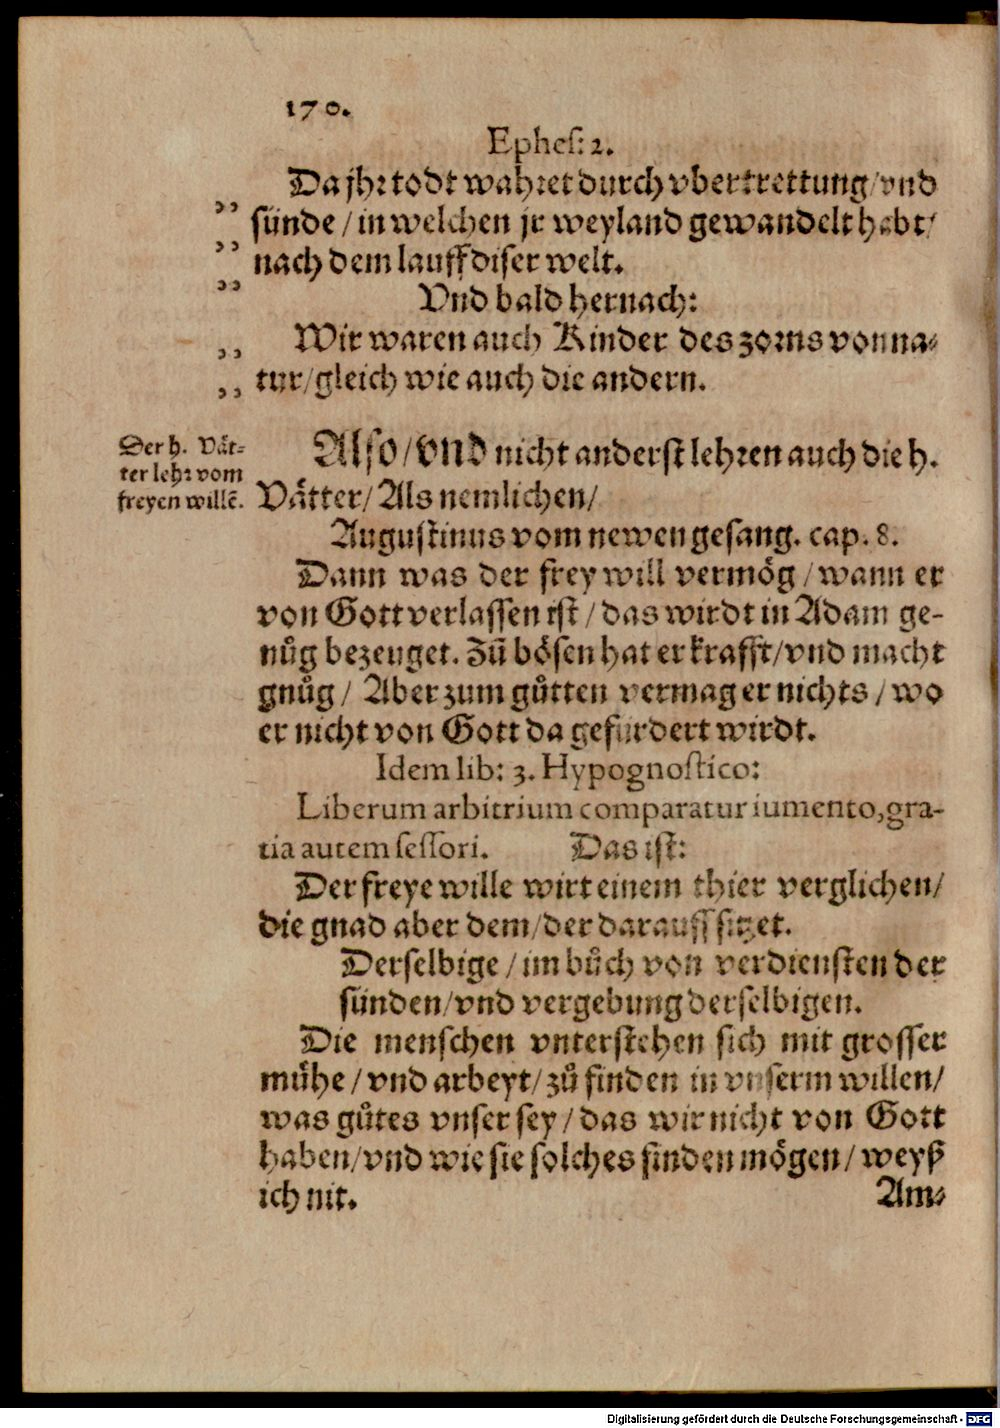 170.
Ephes: 2.
Da jhr todt wahret durch vbertrettung/vnd
,, sünde / in welchen jr weyland gewandelt habt/
,, nach dem lauff diser welt.
,,
Vnd bald hernach:
,, Wir waren auch Kinder des zorns von na-
,, tur/gleich wie auch die andern.
Der h. Vät-
ter lehr vom
freyen willē.
Also/vnd nicht anderst lehren auch die h.
Vätter/ Als nemlichen/
Augustinus vom newen gesang. cap. 8.
Dann was der frey will vermög / wann er
von Gott verlassen ist / das wirdt in Adam ge-
nůg bezeuget. Zů bösen hat er krafft/vnd macht
gnůg / Aber zum gůtten vermag er nichts / wo
er nicht von Gott da gefürdert wirdt.
Idem lib: 3. Hypognostico:
Liberum arbitrium comparatur iumento, gra-
tia autem sessori. Das ist:
Der freye wille wirt einem thier verglichen/
die gnad aber dem/der darauff sitzet.
Derselbige / im bůch von verdiensten der
sünden/vnd vergebung derselbigen.
Die menschen vnterstehen sich mit grosser
mühe / vnd arbeyt/ zů finden in vnserm willen/
was gůtes vnser sey / das wir nicht von Gott
haben/vnd wie sie solches finden mögen / weyß
ich nit.
Am-
Digitalisierung gefördert durch die Deutsche Forschungsgemeinschaft - DFG